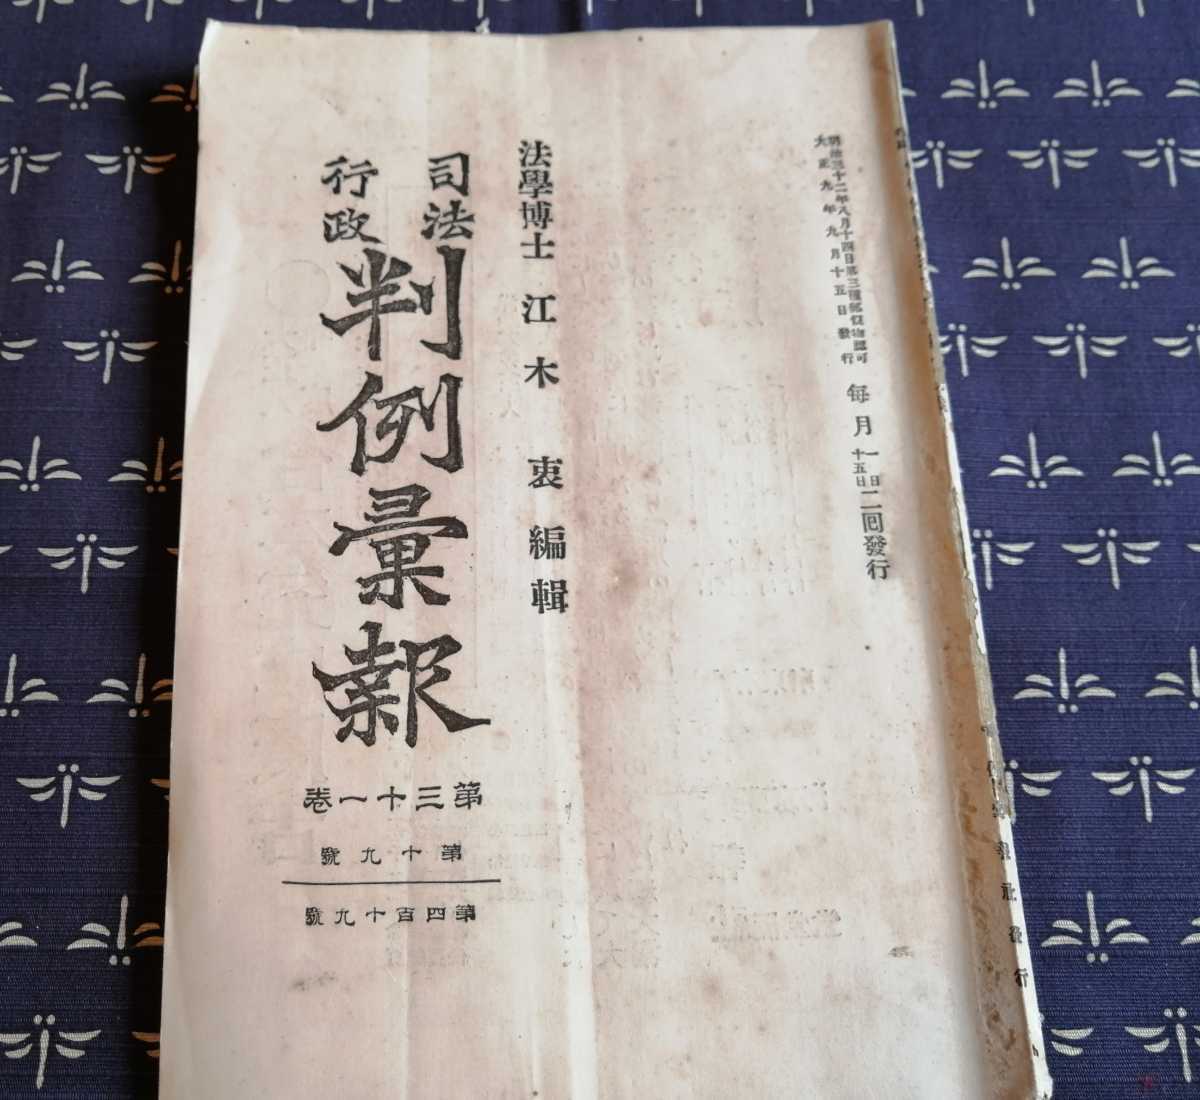 明治三十二年八月十四日第三種郵便物認可
大正九年九月十五日發行
每月一日十五日二回發行
法學博士 江木衷 編輯
司法
行政
判例彙報
第三十一卷
第十九號
第四百十九號
報社發行